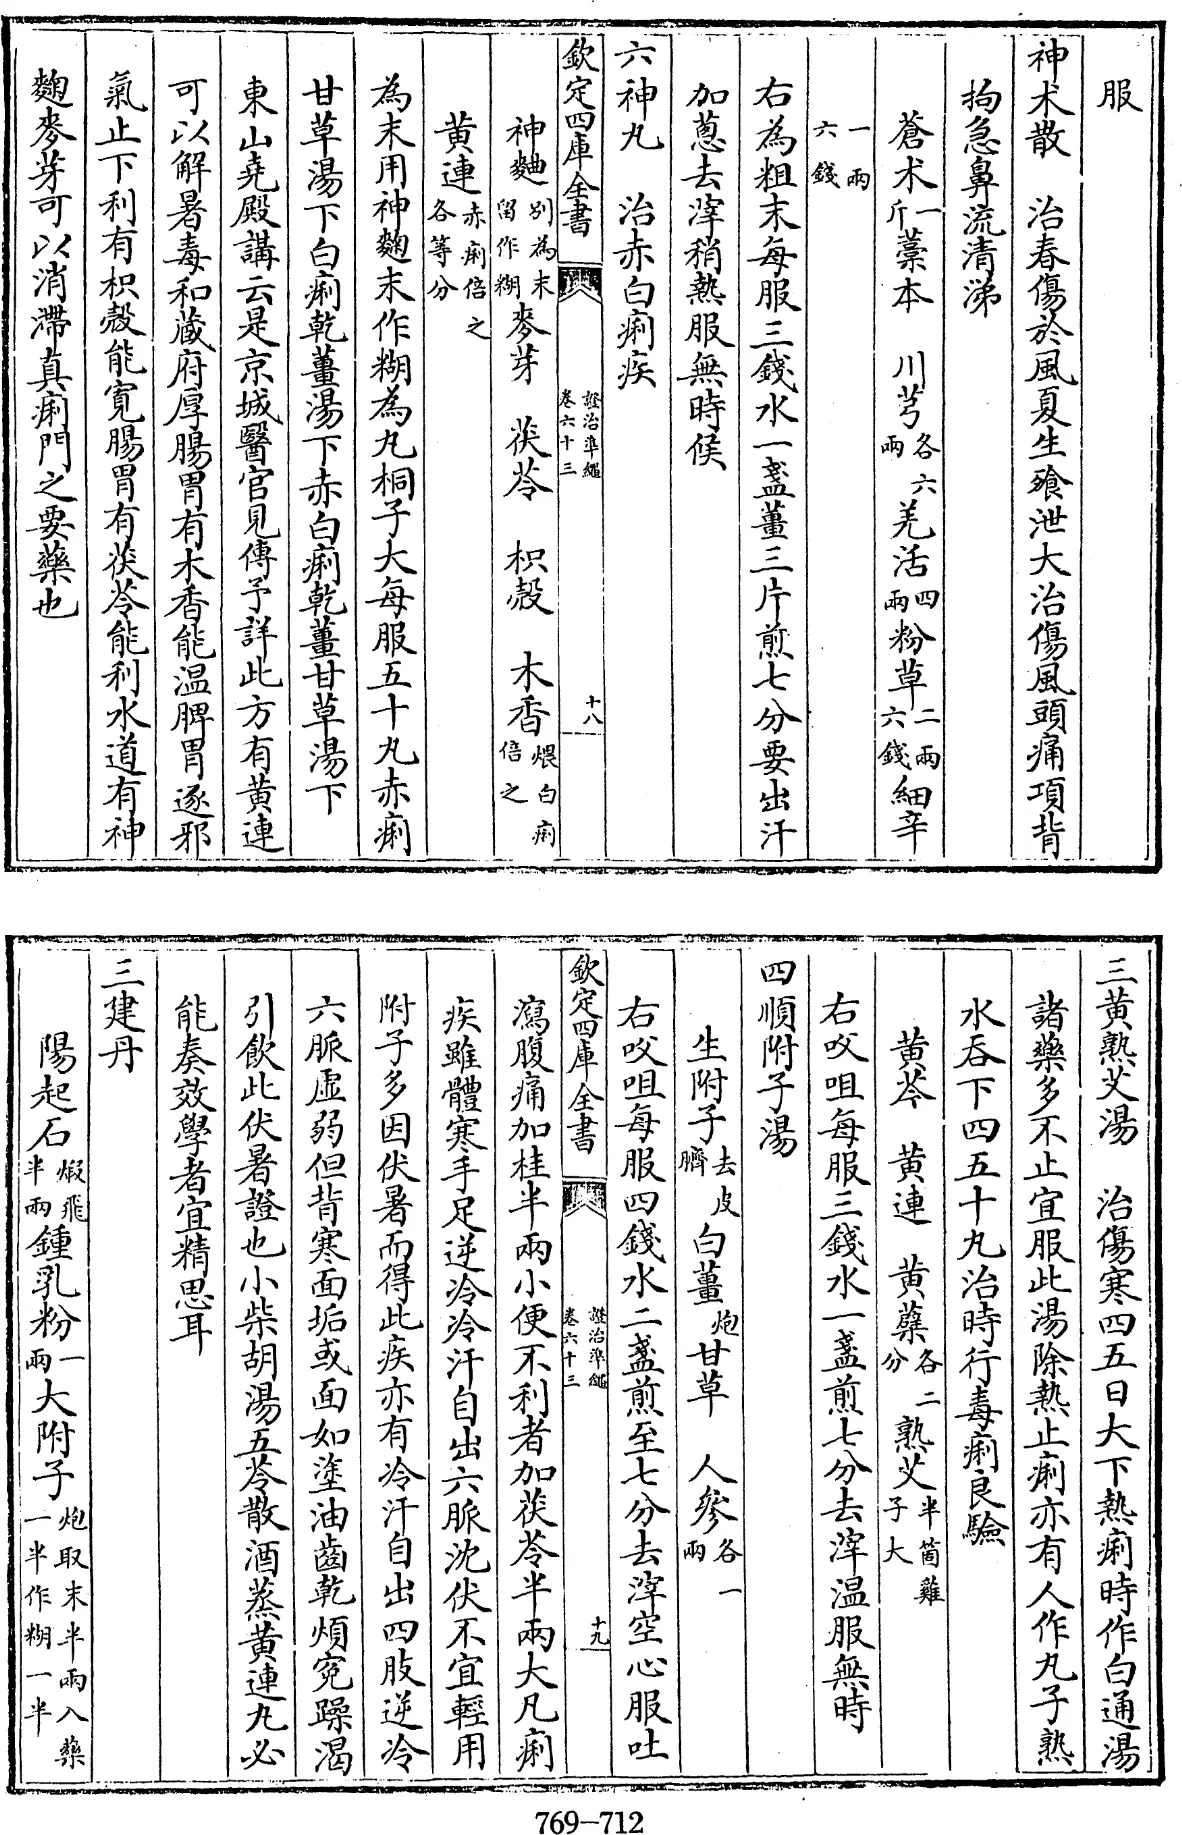 服
神术散　治春傷於風夏生飱泄大治傷風頭痛項背
拘急鼻流清涕
蒼术一斤藁本　川芎各六兩羌活四兩粉草二兩六錢細辛
一兩六錢
右為粗末每服三錢水一盞薑三片煎七分要出汗
加蔥去滓稍熱服無時候
六神丸　治赤白痢疾
欽定四庫全書　證治準繩卷六十三　十八
神麯别為末留作糊麥芽　茯苓　枳殻　木香煨白痢倍之
黄連赤痢倍之各等分
為末用神麯末作糊為丸桐子大每服五十丸赤痢
甘草湯下白痢乾薑湯下赤白痢乾薑甘草湯下
東山堯殿講云是京城醫官見傳予詳此方有黄連
可以解暑毒和藏府厚腸胃有木香能温脾胃逐邪
氣止下利有枳殻能寛腸胃有茯苓能利水道有神
麯麥芽可以消滯真痢門之要藥也
三黄熟艾湯　治傷寒四五日大下熱痢時作白通湯
諸藥多不止宜服此湯除熱止痢亦有人作丸子熟
水吞下四五十丸治時行毒痢良驗
黄芩　黄連　黄蘗各二分熟艾半箇雞子大
右㕮咀每服三錢水一盞煎七分去滓温服無時
四順附子湯
生附子去皮臍白薑炮甘草　人參各一兩
右㕮咀每服四錢水二盞煎至七分去滓空心服吐
欽定四庫全書　證治準繩卷六十三　十九
瀉腹痛加桂半兩小便不利者加茯苓半兩大凡痢
疾雖體寒手足逆冷冷汗自出六脈沈伏不宜輕用
附子多因伏暑而得此疾亦有冷汗自出四肢逆冷
六脈虛弱但背寒面垢或面如塗油齒乾煩寃躁渴
引飲此伏暑證也小柴胡湯五苓散酒蒸黄連丸必
能奏效學者宜精思耳
三建丹
陽起石煅飛半兩鍾乳粉一兩大附子炮取末半兩入藥一半作糊一半
769-712